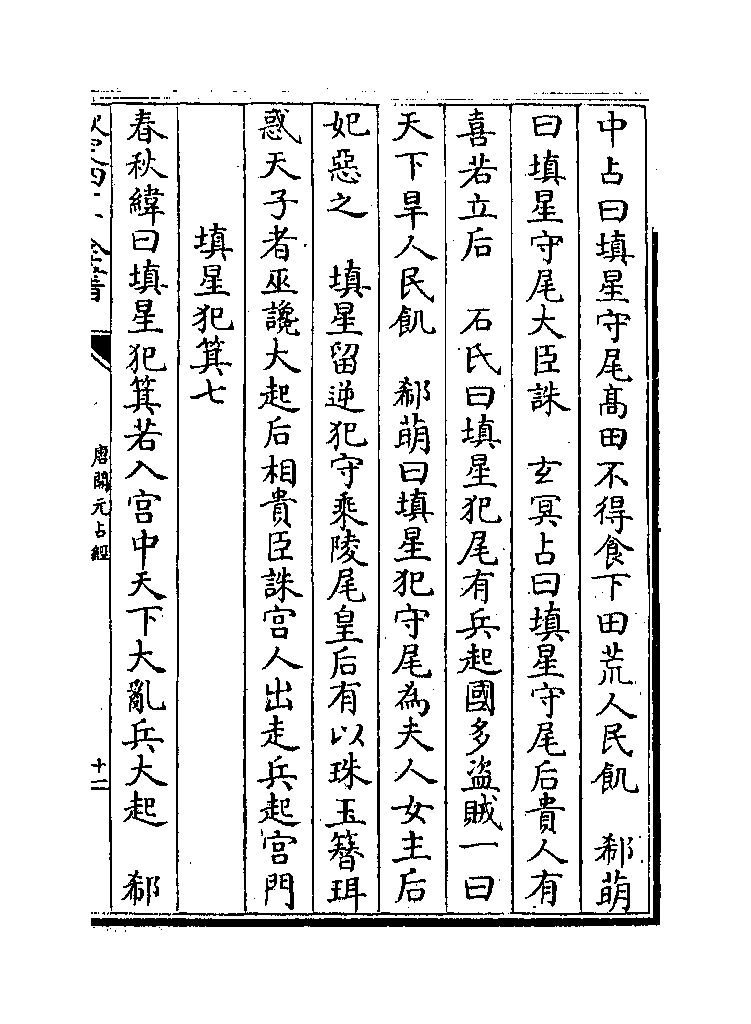 中占曰填星守尾髙田不得食下田荒人民飢　郗萌
曰填星守尾大臣誅　玄冥占曰填星守尾后貴人有
喜若立后　石氏曰填星犯尾有兵起國多盗賊一曰
天下旱人民飢　郗萌曰填星犯守尾為夫人女主后
妃惡之　填星留逆犯守乘陵尾皇后有以珠玉簪珥
惑天子者巫讒大起后相貴臣誅宫人出走兵起宫門
填星犯箕七
春秋緯曰填星犯箕若入宫中天下大亂兵大起　郗
唐開元占經
十二